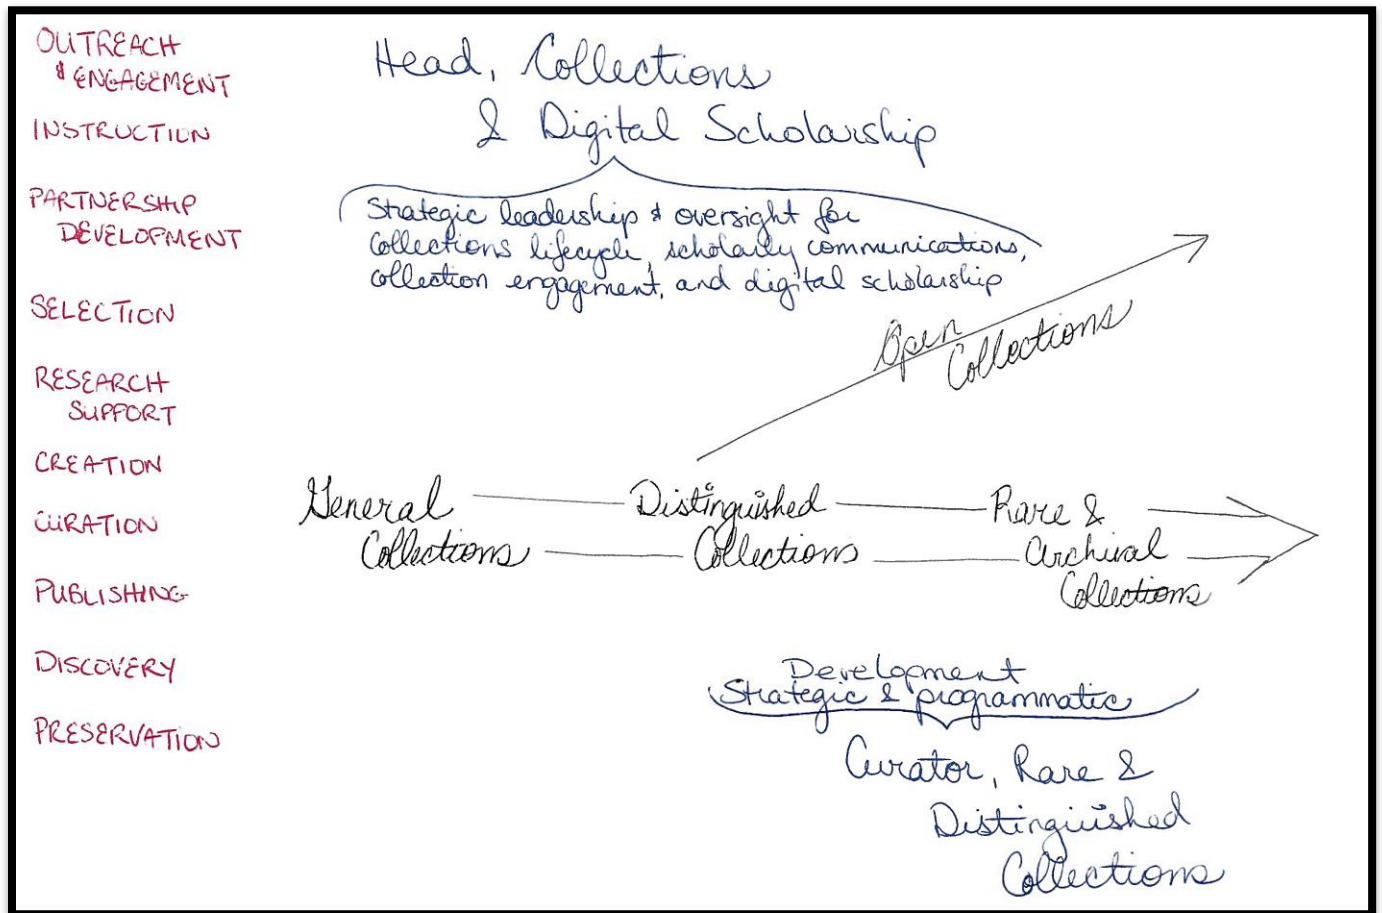 OUTREACH
& ENGAGEMENT
INSTRUCTION
PARTNERSHIP
DEVELOPMENT
SELECTION
RESEARCH
SUPPORT
CREATION
CURATION
PUBLISHING
DISCOVERY
PRESERVATION
Head, Collections
& Digital Scholarship
Strategic leadership & oversight for
collections lifecycle, scholarly communications,
collection engagement, and digital scholarship
Open
Collections
General
Collections
Distinguished
Collections
Rare &
Archival
Collections
Development
Strategic & programmatic
Curator, Rare &
Distinguished
Collections